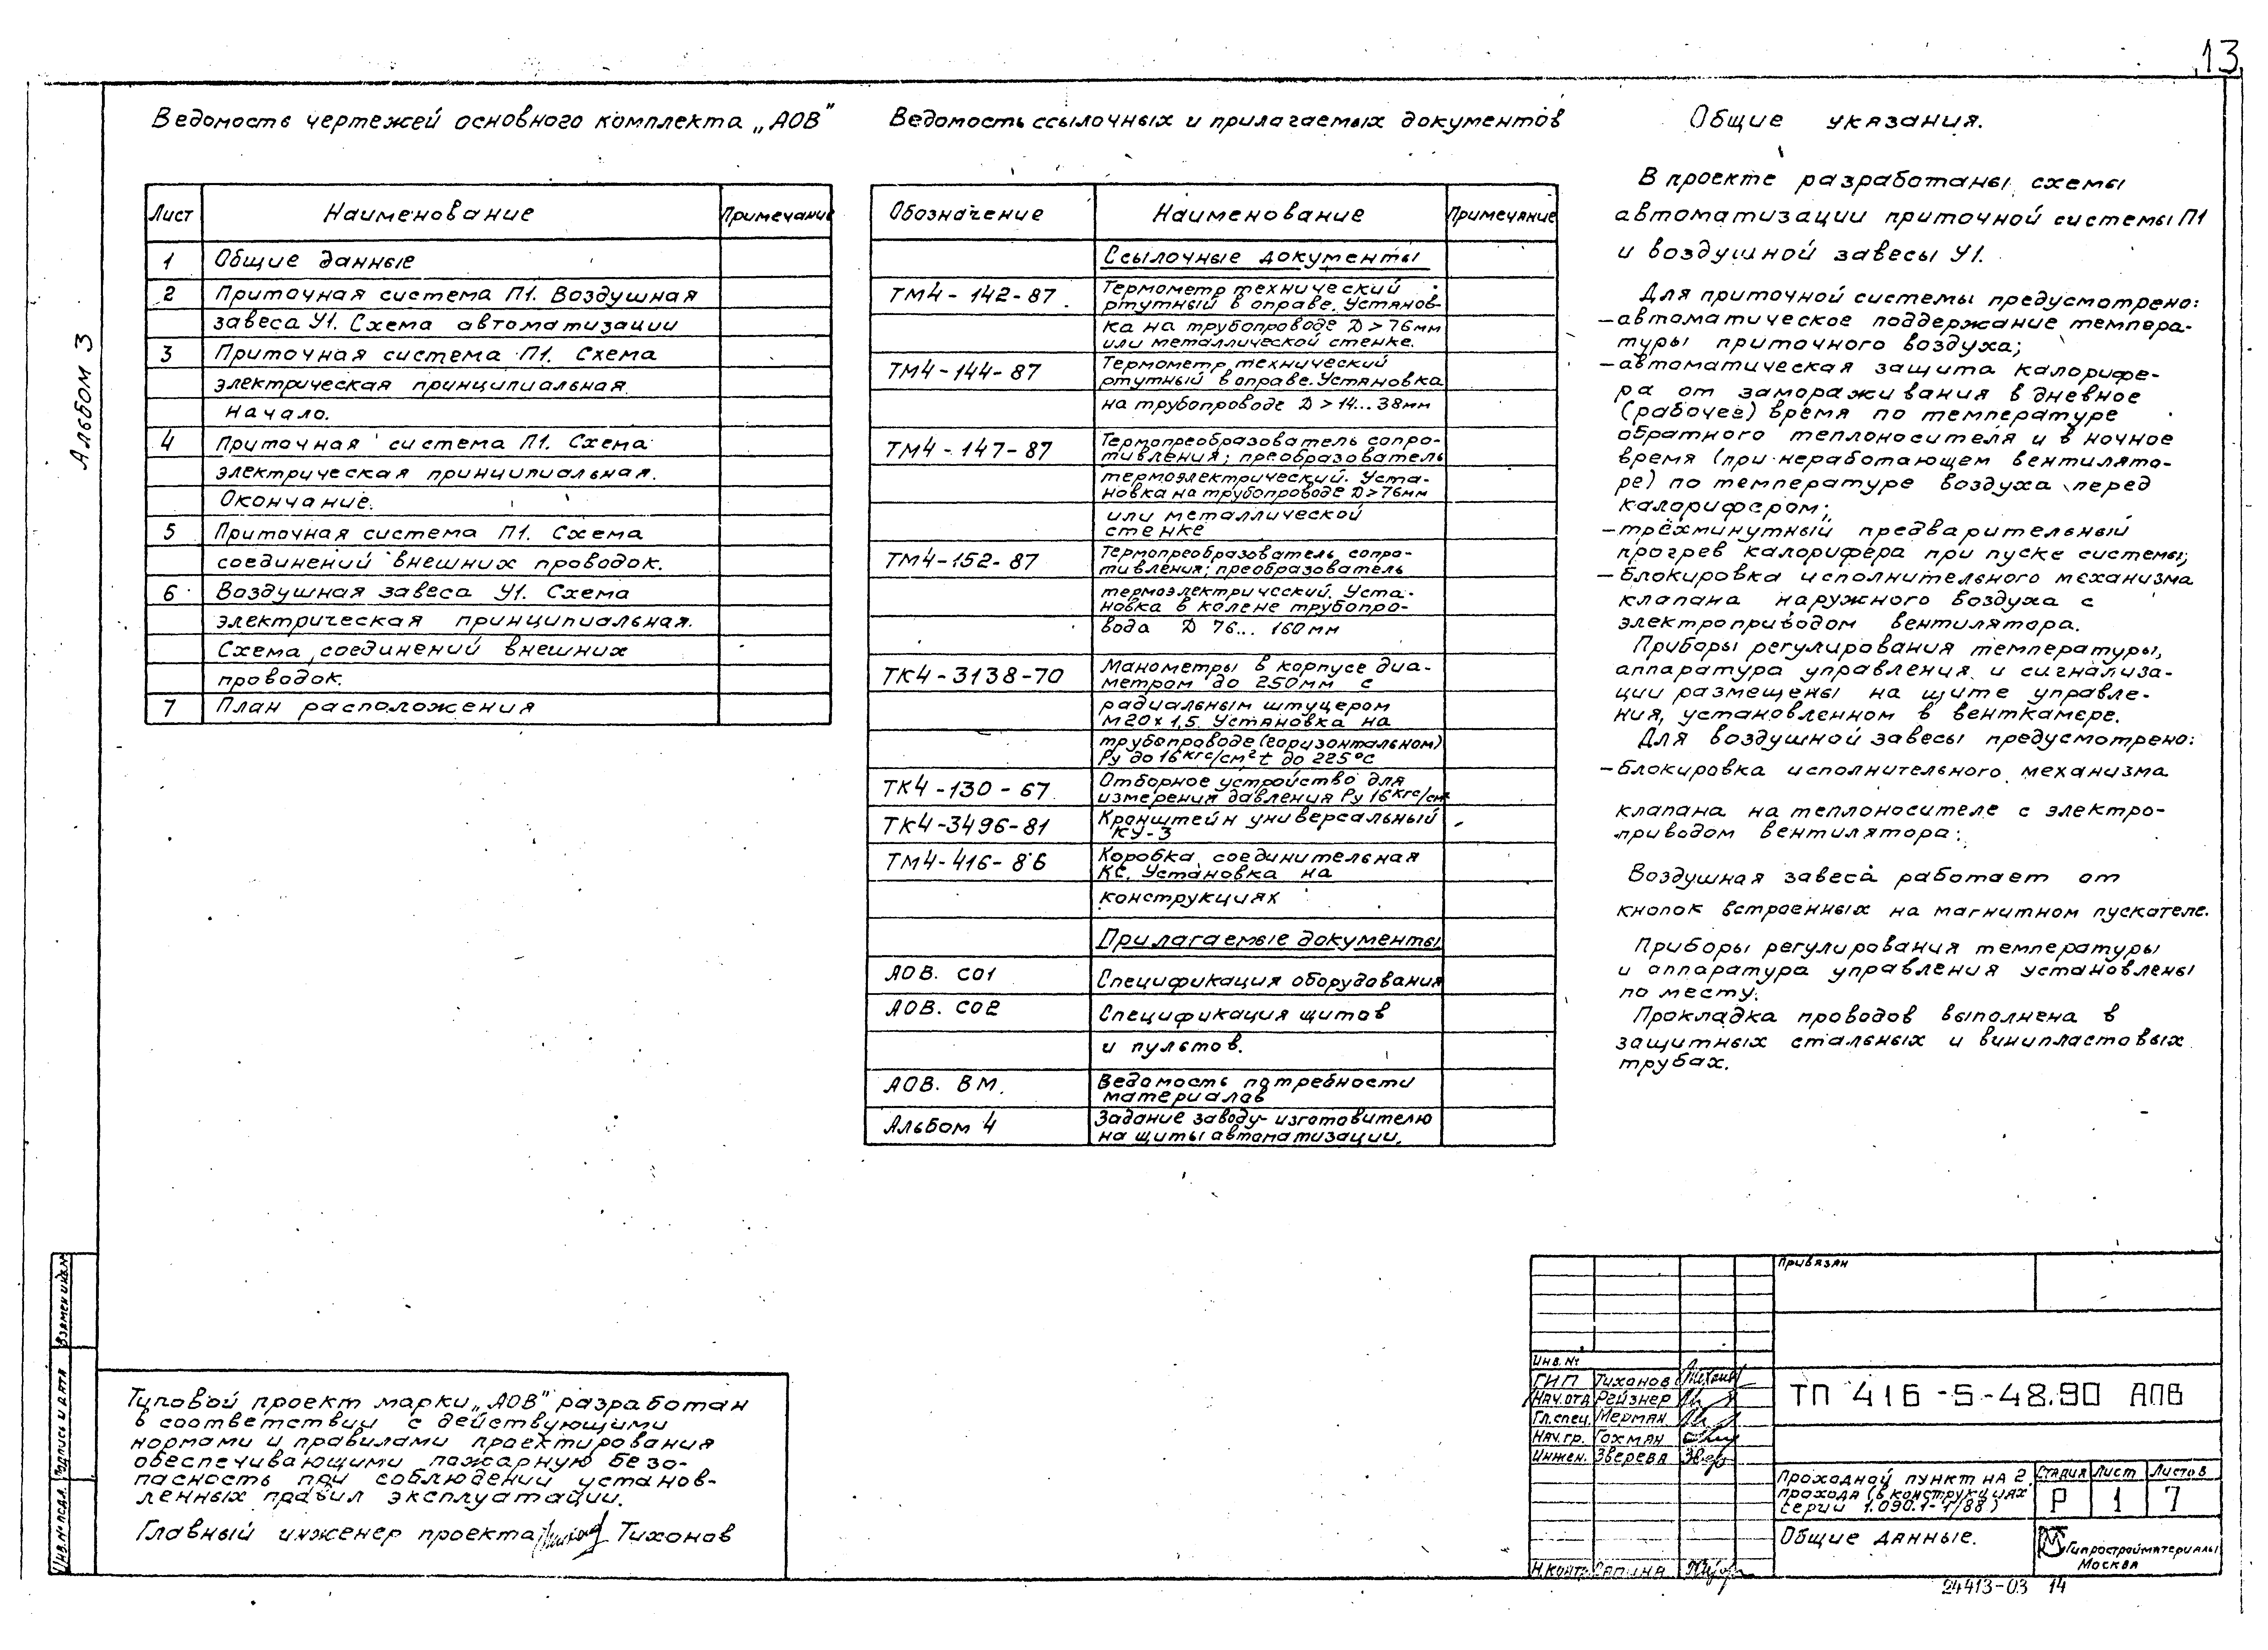 13
Альбом 3
Ведомость чертежей основного комплекта „АОВ"
Лист Наименование Примечание
1 Общие данные
2 Приточная система П1. Воздушная
завеса У1. Схема автоматизации
3 Приточная система П1. Схема
электрическая принципиальная.
Начало.
4 Приточная система П1. Схема
электрическая принципиальная.
Окончание.
5 Приточная система П1. Схема
соединений внешних проводок.
6 Воздушная завеса У1. Схема
электрическая принципиальная.
Схема соединений внешних
проводок.
7 План расположения
Ведомость ссылочных и прилагаемых документов
Обозначение Наименование Примечание
Ссылочные документы
ТМ4-142-87 Термометр технический
ртутный в оправе. Установ-
ка на трубопроводе D > 76мм
или металлической стенке.
ТМ4-144-87 Термометр технический
ртутный в оправе. Установка
на трубопроводе D > 14...38мм
ТМ4-147-87 Термопреобразователь сопро-
тивления; преобразователь
термоэлектрический. Уста-
новка на трубопроводе D>76мм
или металлической
стенке
ТМ4-152-87 Термопреобразователь сопро-
тивления; преобразователь
термоэлектрический. Уста-
новка в колене трубопро-
вода D 76... 160мм
ТК4-3138-70 Манометры в корпусе диа-
метром до 250мм с
радиальным штуцером
М20х1,5. Установка на
трубопроводе (горизонтальном)
Ру до 16кгс/см² t до 225°С
ТК4-130-67 Отборное устройство для
измерения давления Ру 16кгс/см²
ТК4-3496-81 Кронштейн универсальный
КУ-3
ТМ4-416-86 Коробка соединительная
КС. Установка на
конструкциях
Прилагаемые документы
АОВ. СО1 Спецификация оборудования
АОВ. СО2 Спецификация щитов
и пультов.
АОВ. ВМ. Ведомость потребности
материалов
Альбом 4 Задание заводу-изготовителю
на щиты автоматизации.
Общие указания.
В проекте разработаны схемы
автоматизации приточной системы П1
и воздушной завесы У1.
Для приточной системы предусмотрено:
—автоматическое поддержание темпера-
туры приточного воздуха;
—автоматическая защита калорифе-
ра от замораживания в дневное
(рабочее) время по температуре
обратного теплоносителя и в ночное
время (при неработающем вентилято-
ре) по температуре воздуха перед
калорифером;
—трёхминутный предварительный
прогрев калорифера при пуске системы;
—блокировка исполнительного механизма
клапана наружного воздуха с
электроприводом вентилятора.
Приборы регулирования температуры,
аппаратура управления и сигнализа-
ции размещены на щите управле-
ния, установленном в венткамере.
Для воздушной завесы предусмотрено:
—блокировка исполнительного механизма
клапана на теплоносителе с электро-
приводом вентилятора.
Воздушная завеса работает от
кнопок встроенных на магнитном пускателе.
Приборы регулирования температуры
и аппаратура управления установлены
по месту.
Прокладка проводов выполнена в
защитных стальных и винипластовых
трубах.
Типовой проект марки „АОВ" разработан
в соответствии с действующими
нормами и правилами проектирования
обеспечивающими пожарную безо-
пасность при соблюдении установ-
ленных правил эксплуатации.
Главный инженер проекта Тихонов
Взамен инв.№
Подпись и дата
Инв.№ подл.
Привязан
Инв. №
ГИП Тихонов
Нач.отд Рейзнер
Гл.спец. Мерман
Нач.гр. Гохман
Инжен. Зверева
Н.контр. Сапина
ТП 416-5-48.90 АОВ
Проходной пункт на 2
прохода (в конструкциях
серии 1.090.1-1/88)
Стадия Лист Листов
Р 1 7
Общие данные.
Гипростройматериалы
Москва
24413-03 14